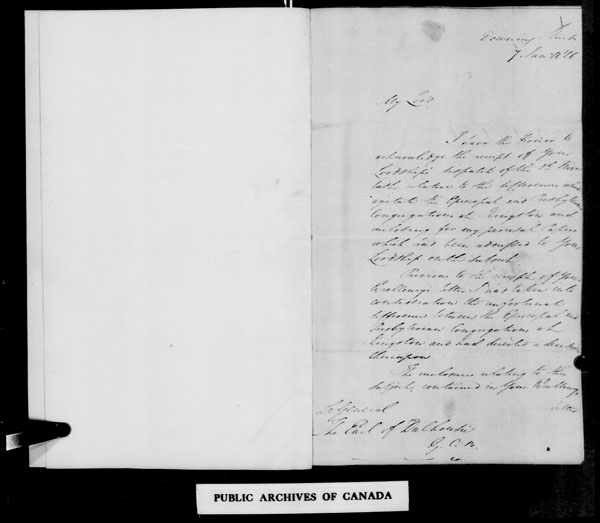 Downing Street
7 Jan. 1826
My Lord
I have the honor to
acknowledge the receipt of Your
Lordship's dispatch of the
last relative to the differences which
agitate the Episcopal and Presbyterian
Congregations at Kingston and
enclosing for my perusal Papers
which had been addressed to Your
Lordship on the subject.
Previous to the receipt of Your
Excellency's letter I had taken into
consideration the unfortunate
difference between the Episcopal and
Presbyterian Congregations at
Kingston and had directed a
thereupon
The enclosures relating to this
subject, contained in Your Excellency's
letter
Lt General
The Earl of Dalhousie
G. C. B.
PUBLIC ARCHIVES OF CANADA